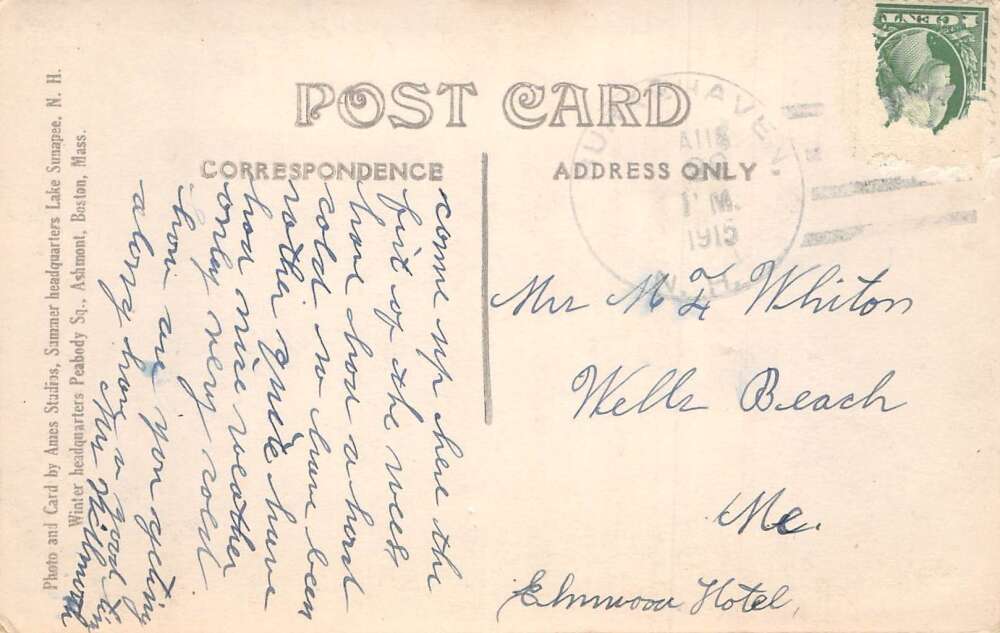 POST CARD
CORRESPONDENCE
ADDRESS ONLY
Photo and Card by Ames Studios, Summer headquarters Lake Sunapee, N. H.
Winter headquarters Peabody Sq., Ashmont, Boston, Mass.
come up here the
first of the week
have had a hard
cold so have been
rather quiet have
had nice weather
only very cold
how are you geting
along have a good tim
Mr
HAVEN,
AUG
M.
1915
N. H.
1 CENT 1
Mrs M F Whiton
Wells Beach
Me.
Elmwood Hotel,